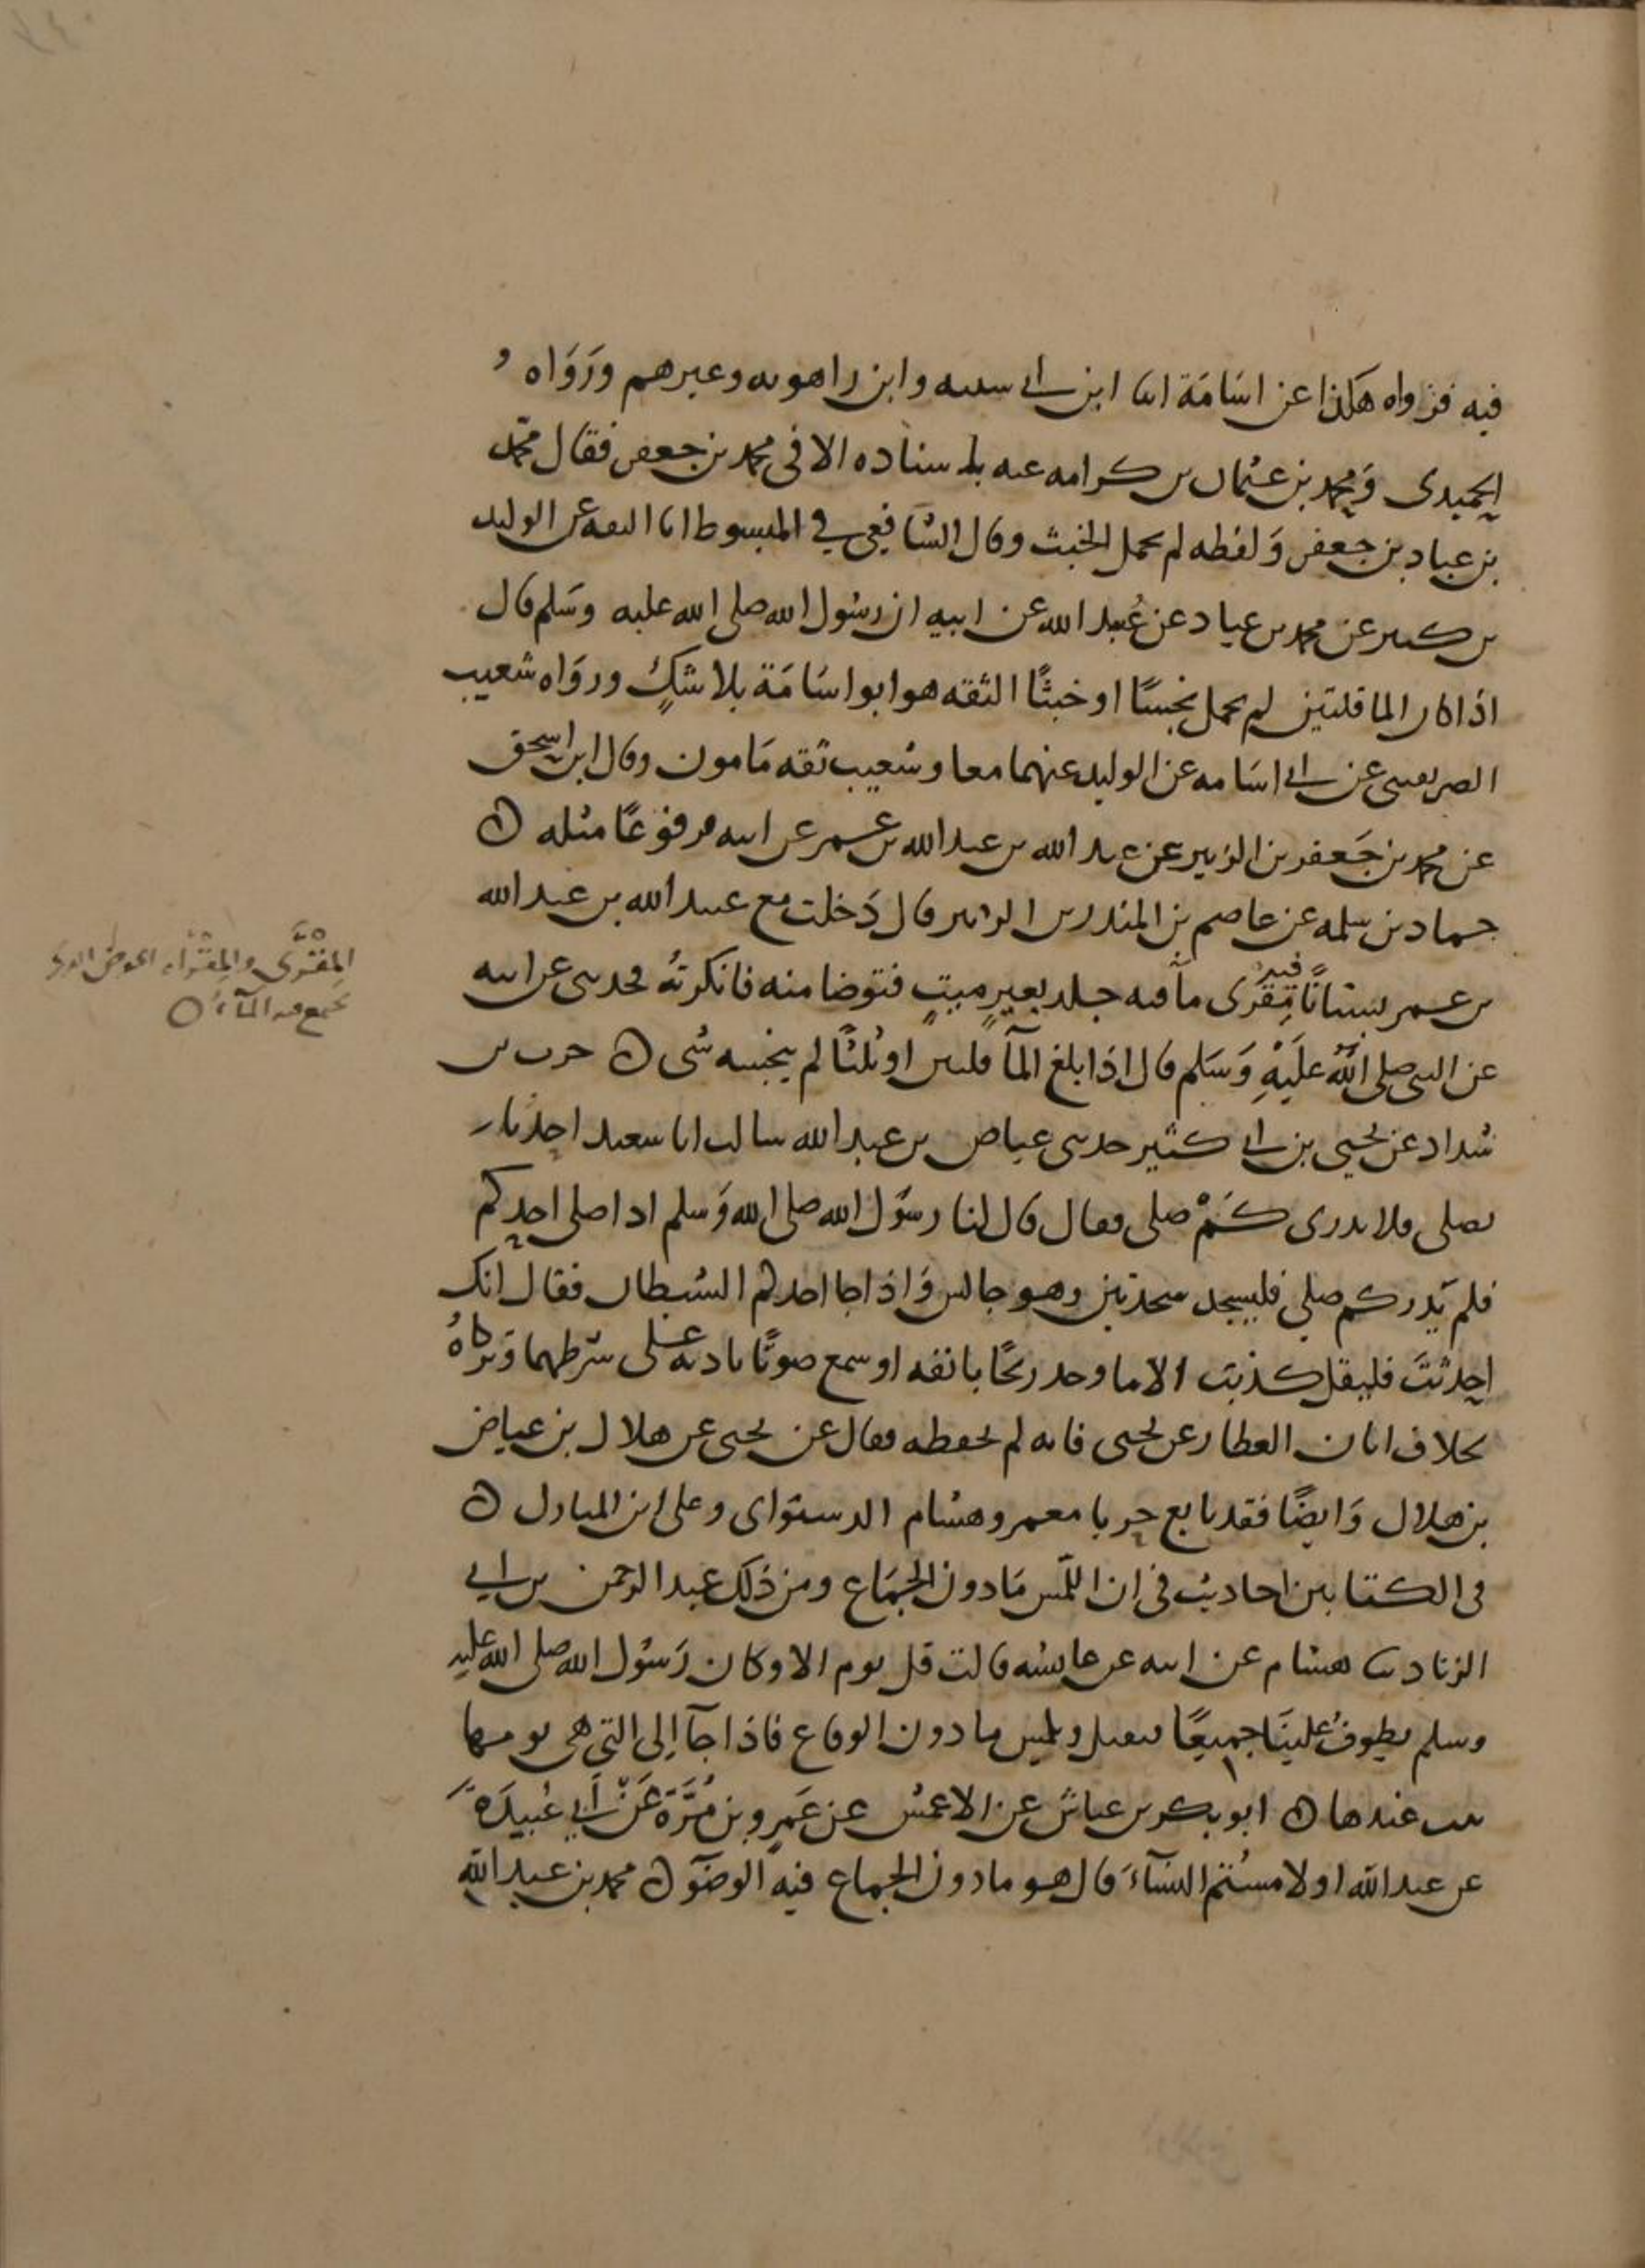 فيه فرواه هكذا عن اسامة ابنا ابن ابي سيبه وابن راهويه وغيرهم ورواه
الحميدي ومحمد بن عثمان بن كرامه عنه باسناده الا في محمد بن جعفر فقال محمد
بن عباد بن جعفر ولفظه لم يحمل الخبث وقال الشافعي في المبسوط انا الثقه عن الوليد
بن كثير عن محمد بن عباد عن عبد الله عن ابيه ان رسول الله صلى الله عليه وسلم قال
اذا كان الما قلتين لم يحمل نجسًا او خبثًا الثقه هو ابو اسامة بلا شكٍ ورواه شعيب
الصريفيني عن ابي اسامه عن الوليد عنهما معا وشعيب ثقه مامون وقال ابن اسحق
عن محمد بن جعفر بن الزبير عن عبيد الله بن عبد الله بن عمر عن ابيه مرفوعًا مثله ه
حماد بن سلمه عن عاصم بن المنذر بن الزبير قال دخلت مع عبيد الله بن عبد الله
بن عمر بستانًا فيه مِقْرى مآ فيه جلد بعيرٍ ميتٍ فتوضا منه فانكرته فحدثني عن ابيه
عن النبي صلى الله عليه وسلم قال اذا بلغ المآ قلتين او ثلثًا لم ينجسه شي ه حرب بن
شداد عن يحيى بن ابي كثير حدثني عياض بن عبد الله سالت ابا سعيد احدنا
يصلي ولا يدري كم صلى فقال قال لنا رسول الله صلى الله وسلم اذا صلى احدكم
فلم يدر كم صلي فليسجد سجدتين وهو جالس واذا جا احدكم الشيطان فقال انك
احدثت فليقل كذبت الا ما وجد ريحًا بانفه او سمع صوتًا باذنه على شرطهما وتركاهُ
لخلاف ابان العطار عن يحيى فانه لم يحفظه فقال عن يحيى عن هلال بن عياض
بن هلال وايضًا فقد تابع حربا معمر وهشام الدستواي وعلى ابن المبارك ه
في الكتابين احاديث في ان اللمس مادون الجماع ومن ذلك عبد الرحمن بن ابي
الزناد هشام عن ابيه عن عايشه قالت قل يوم الا وكان رسول الله صلى الله عليه
وسلم يطوف علينا جميعًا فيقبل ويلمس ما دون الوقاع فاذا جآ الى التي هي يومها
يبيت عندها ه ابو بكر بن عياش عن الاعمش عن عمرو بن مُرَّة عَنْ أبي عُبيدَة
عن عبد الله او لامستم النسآء قال هو مادون الجماع فيه الوضوء ه محمد بن عبد الله
المِقْرَى والمِقْراه الحوض الذي
يجمع فيه المآء ه